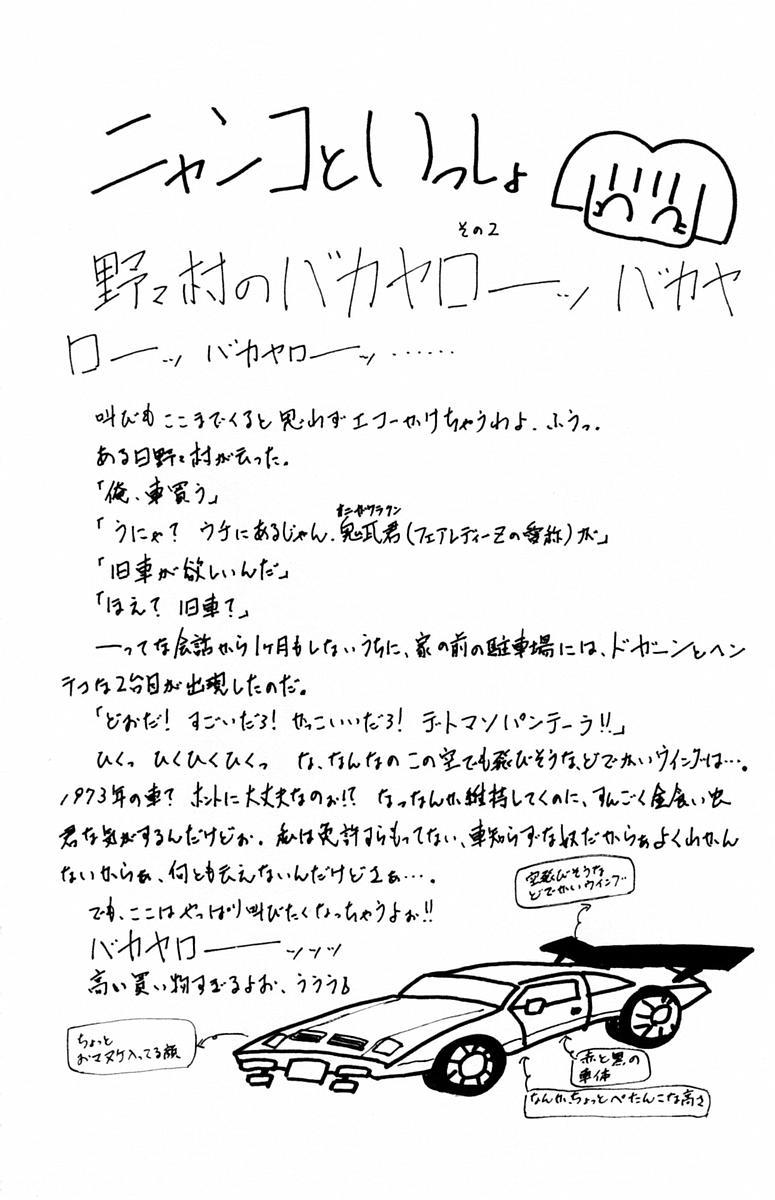 ニャンコといっしょ
その2
野々村のバカヤローーッ バカヤ
ローーッ バカヤローーッ ‥‥‥
叫びもここまでくると思わずエコーかけちゃうわよ.ふうっ.
ある日野々村が云った。
「俺、車買う」
オニガワラクン
「うにゃ? ウチにあるじゃん.鬼瓦君(フェアレディーZの愛称)が」
「旧車が欲しいんだ」
「ほえ? 旧車?」
―ってな会話から1ヶ月もしないうちに、家の前の駐車場には、ドガーンとヘン
テコな2台目が出現したのだ。
「どおだ! すごいだろ! かっこいいだろ! デ・トマソパンテーラ!!」
ひくっ ひくひくひくっ な、なんなの この空でも飛びそうな、どでかいウイングは…。
1973年の車? ホントに大丈夫なのぉ!? なっなんか維持してくのに、すんごく金食い虫
君な気がするんだけどぉ. 私は免許すらもってない、車知らずな奴だからぁよくわかん
ないからぁ、何とも云えないんだけどさぁ….
でも、ここはやっぱり叫びたくなっちゃうよぉ!!
バカヤローーーッッッ
高い買い物すぎるよお、ううう
空飛びそうな
どでかいウイング
ちょっと
おマヌケ入ってる顔
赤と黒の
車体
なんか、ちょっとぺたんこな高さ